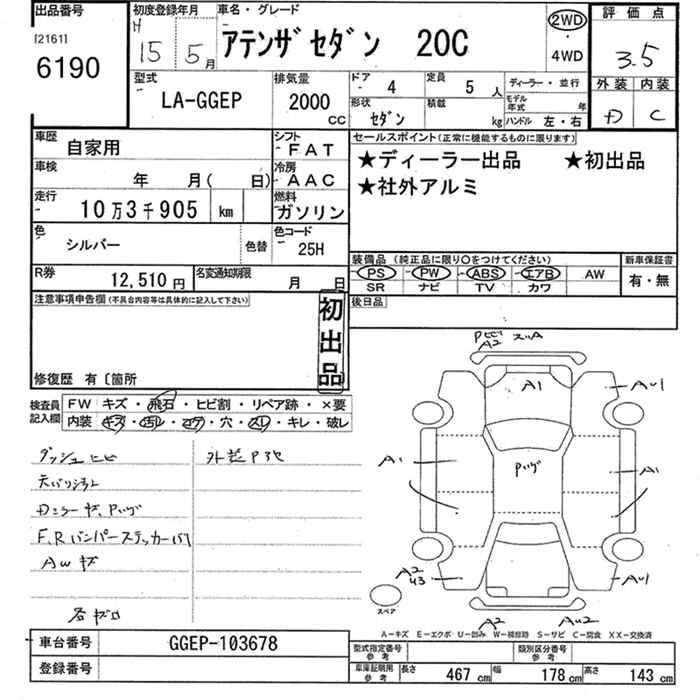 出品番号 初度登録年月 車名・グレード 評価点
[2161] H 15 5月 アテンザセダン 20C 2WD 3.5
6190 ・ 4WD
型式 排気量 ドア 4 定員 5人 ディーラー・並行 外装 内装
LA-GGEP 2000 CC 形状 セダン 積載 kg モデル年式 年 D C
ハンドル 左・右
車歴 自家用 シフト FAT セールスポイント(正常に機能するものに限ります)
車検 年 月( 日) 冷房 AAC ★ディーラー出品 ★初出品
走行 10万3千905 km 燃料 ガソリン ★社外アルミ
色 シルバー 色替 色コード 25H
装備品 (純正品に限り○をつけてください) 新車保証書
PS PW ABS エアB AW 有・無
SR ナビ TV カワ
R券 12,510円 名変通知期限 月 日
後日品
注意事項申告欄(不具合内容等は具体的に記入して下さい)
初出品
修復歴 有〔箇所
検査員記入欄 FW キズ・飛石・ヒビ割・リペア跡・×要
内装 キズ・汚レ・コゲ・穴・スレ・キレ・破レ
ダッシュヒビ
F,Rバンパーステッカー
AWキズ
A2
A1 AU1
A1 A1
A2 U3 AU1
スペア
A2 AU2
A-キズ E-エクボ U-凹み W-補修跡 S-サビ C-腐食 XX-交換済
車台番号 GGEP-103678 型式指定番号 参考 類別区分番号 参考
登録番号 車庫証明用 参考 長さ 467 cm 幅 178 cm 高さ 143 cm